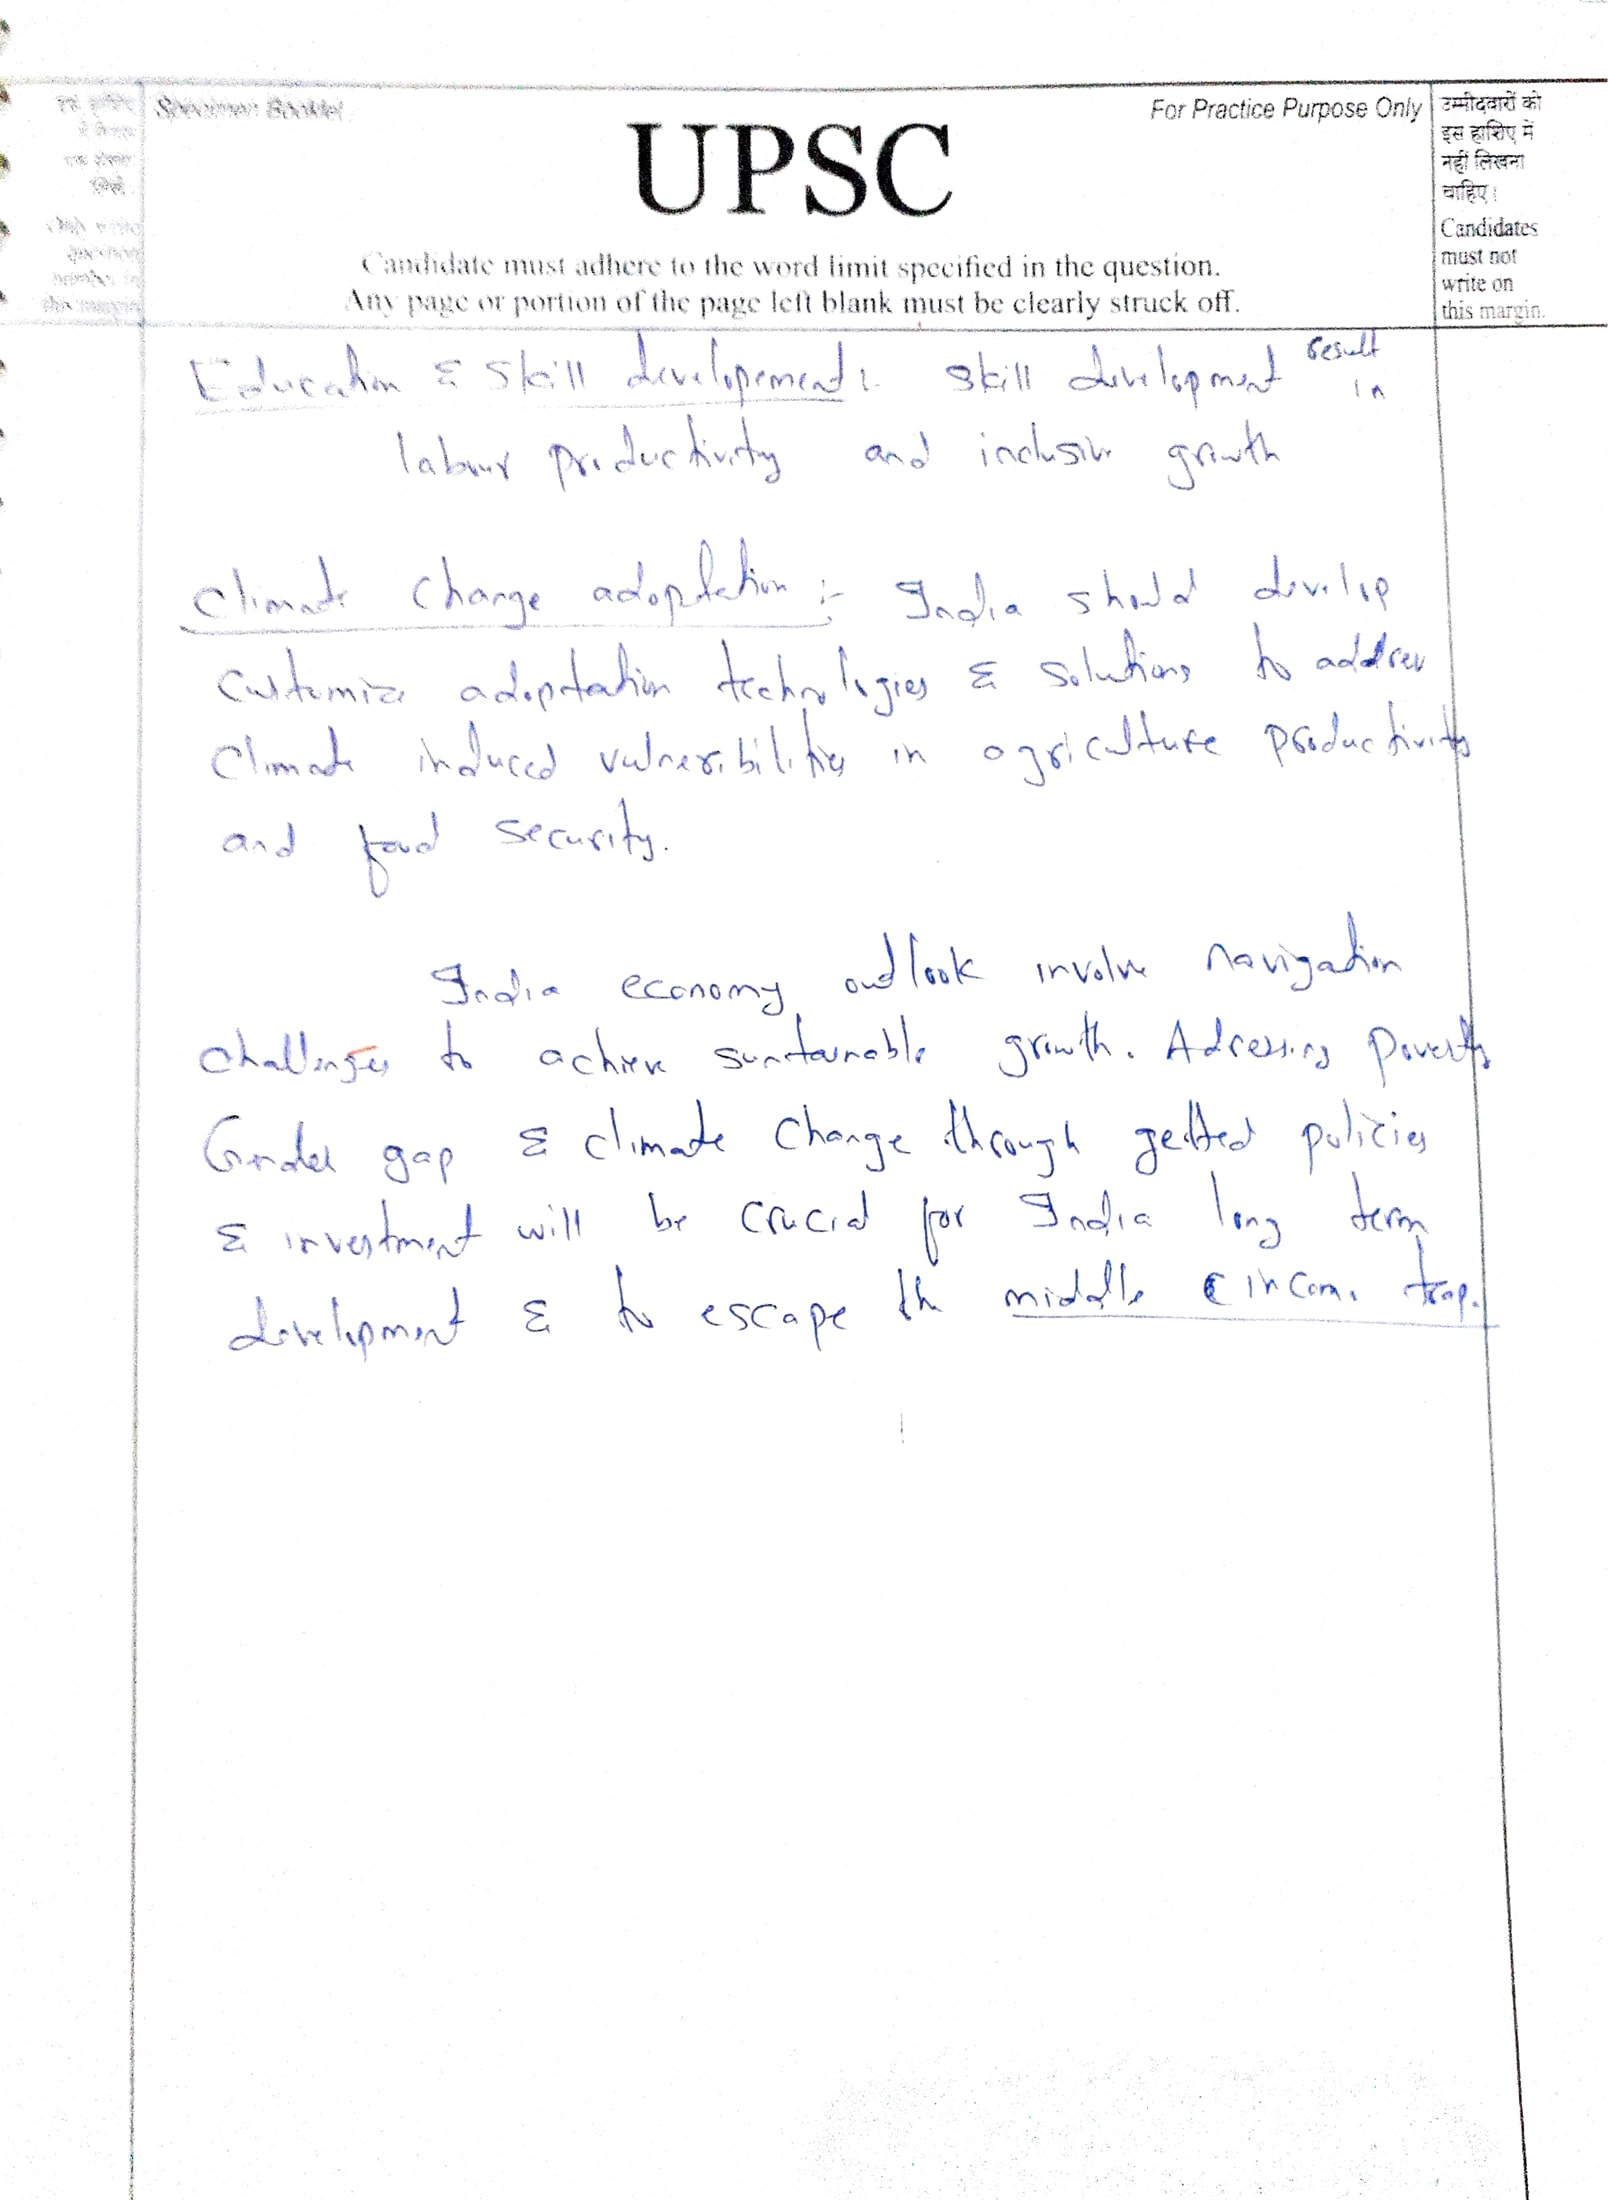 Specimen Booklet
For Practice Purpose Only
UPSC
Candidate must adhere to the word limit specified in the question.
Any page or portion of the page left blank must be clearly struck off.
उम्मीदवारों को
इस हाशिए में
नहीं लिखना
चाहिए।
Candidates
must not
write on
this margin.
Education & Skill developement :- Skill development result in
labour productivity and inclusive growth
Climate Change adoptation :- India should develop
Customize adoptation technologies & solutions to address
Climate induced vulneribilities in agriculture productivity
and food security.
India economy outlook involve navigation
Challenges to achieve sustainable growth. Adressing poverty
Gender gap & climate Change through policies
& investment will be crucial for India long term
development & to escape the middle income trap.